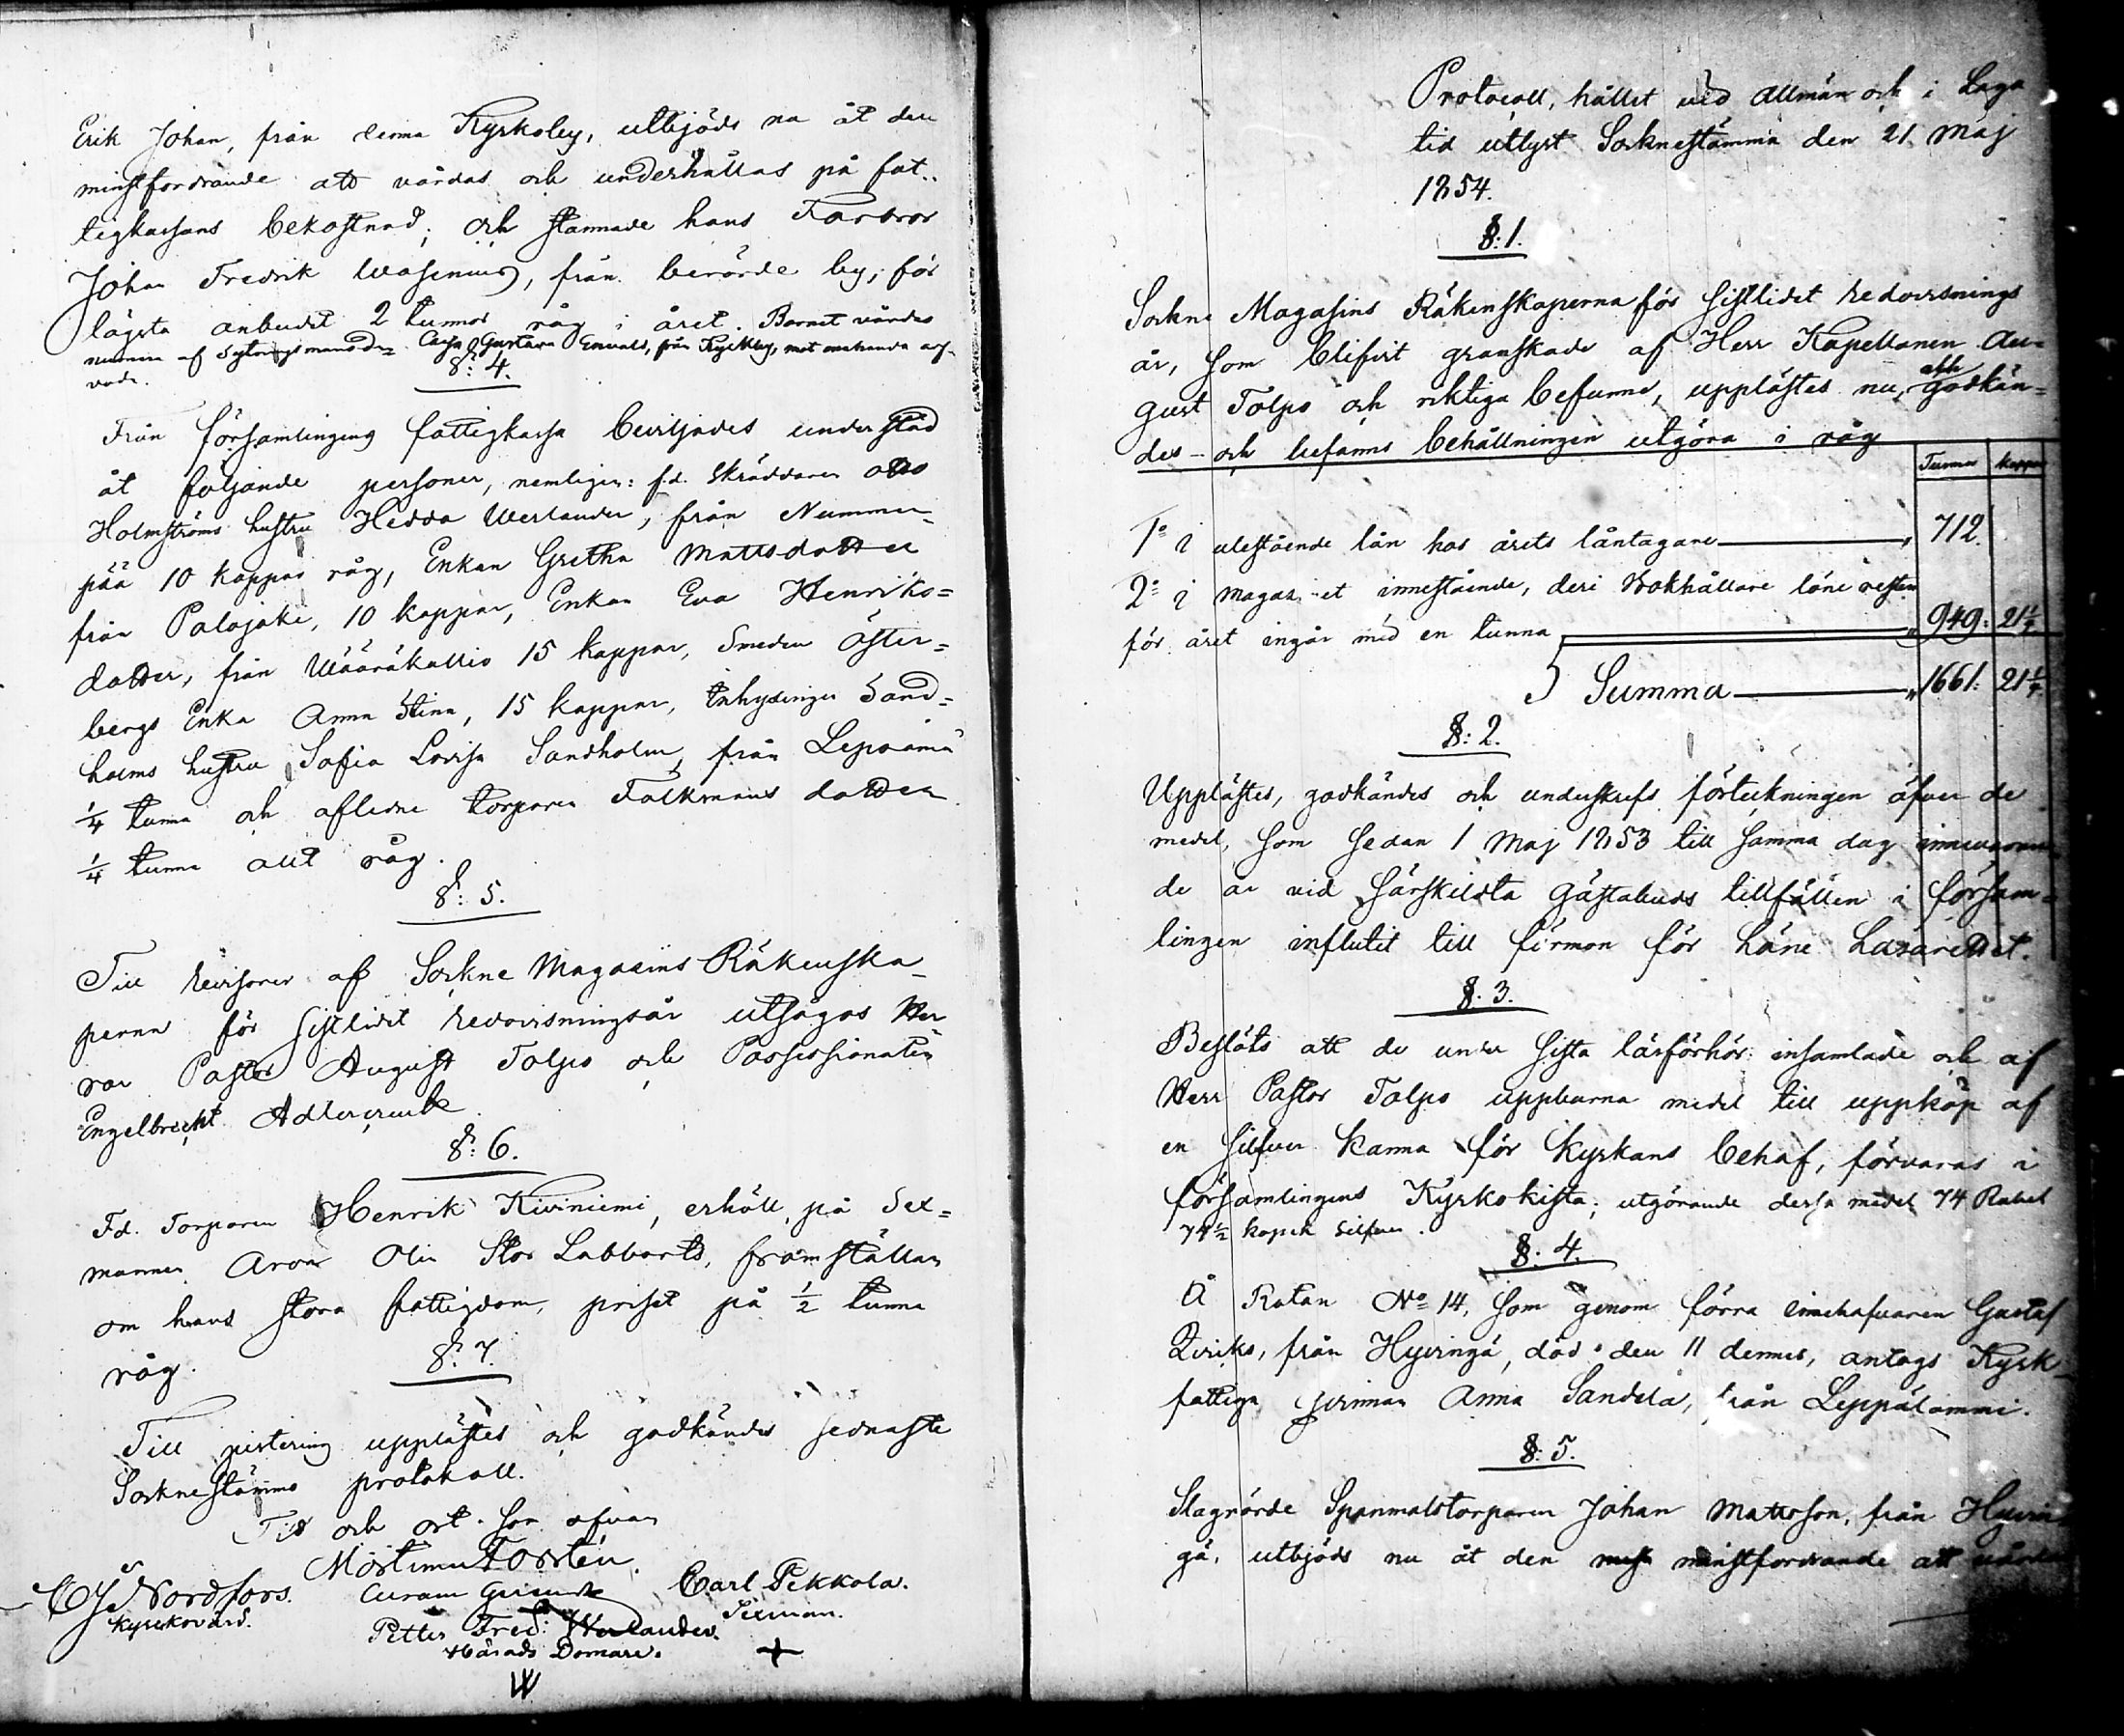 Erik Johan, från denna Kyrkoby, utbjöds nu åt den
minstfordrande att vårdas och underhållas på fat-
tigkassans bekostnad; och stannade hans Farbror
Johan Fredrik Wasenius, från berörde by, för
lägsta anbudet 2 tunnor råg i året. Barnet vårdas
numera af Gustava Enwald, från Kyrkoby, mot
8: 4.
Från församlingens fattigkassa beviljades understöd
åt följande personer, nemligen: f.d. Skräddaren Otto
Holmströms hustru Hedda Werlander, från Nummen-
pää 10 kappar råg, Enkan Gretha Mattsdotter
från Palojoki, 10 kappar, Enkan Eva Henriks=
dotter, från Wääräkallio 15 kappar, Smeden Öster=
bergs Enka Anna Stina, 15 kappar, Inhysingen Sand=
holms hustru Sofia Lovisa Sandholm, från Lepsämä
1/4 tunna och aflidne torparen Falkmans dotter
1/4 tunna allt råg.
8: 5.
Till Revisorer af Sockne Magasins Räkenska-
perna för sistlidit redovisningsår utsågos Her-
rar Pastor August Tolpo och Possessionaten
Engelbrecht Adlercreutz.
8: 6.
Fd. Torparen Henrik Kiviniemi, erhöll, på Sex=
mannen Aron Olis Stor Labbarts, framställan
om hans stora fattigdom, priset på 1/2 tunna
råg.
8: 7.
Till justering upplästes och godkändes sednaste
Sockneståmmo protokoll.
Tid och ort som ofvan
Mortimer Forstén.
C J Nordfors. Carl Pekkola.
Kyrkovärd. Sexman.
Petter Fred: Werlander.
Härads Domare.
Protocoll, hållet vid allmän och i Laga
tid utlyst Socknestämma den 21 Maj
1854.
§: 1.
Sockne Magasins Räkenskaperna för sistlidit redovisnings
år, som blifvit granskade af Herr Kapellanen Au=
gust Tolpo och riktiga befunna, upplästes nu, och godkän=
des - och befanns behållningen utgöra i råg
Tunnor Kappar
1o i utestående lån hos årets låntagare 712.
2o i magaz-et innestående, deri Bokhållare löne resten
för året ingår med en tunna 949: 21 1/4.
Summa 1661: 21 1/4
§: 2.
Upplästes, godkändes och underskrefs förteckningen öfver de
medel, som sedan 1 Maj 1853 till samma dag innevaran-
de år vid särskildta Gästabuds tillfällen i försam=
lingen influtit till förmon för Läne Lazarettet.
§. 3.
Beslöts att de under sista läsförhör insamlade och af
Herr Pastor Tolpo uppburna medel till uppköp af
en silfver Kanna för Kyrkans behof, förvaras i
församlingens Kyrkokista; utgörande dessa medel 74 Rubel
74 1/2 kopek Silfver.
§. 4.
Å Rotan No 14, som genom förra innehafvaren Gustaf
Qviriks, från Hyvingä, död den 11 dennes, antogs Kyrk-
fattiga qvinnan Anna Sandela, från Leppälammi.
§: 5.
Slagrörde Spanmalstorparen Johan Mattsson, från Hyvin-
gä, utbjöds nu åt den minstfordrande att vårdas